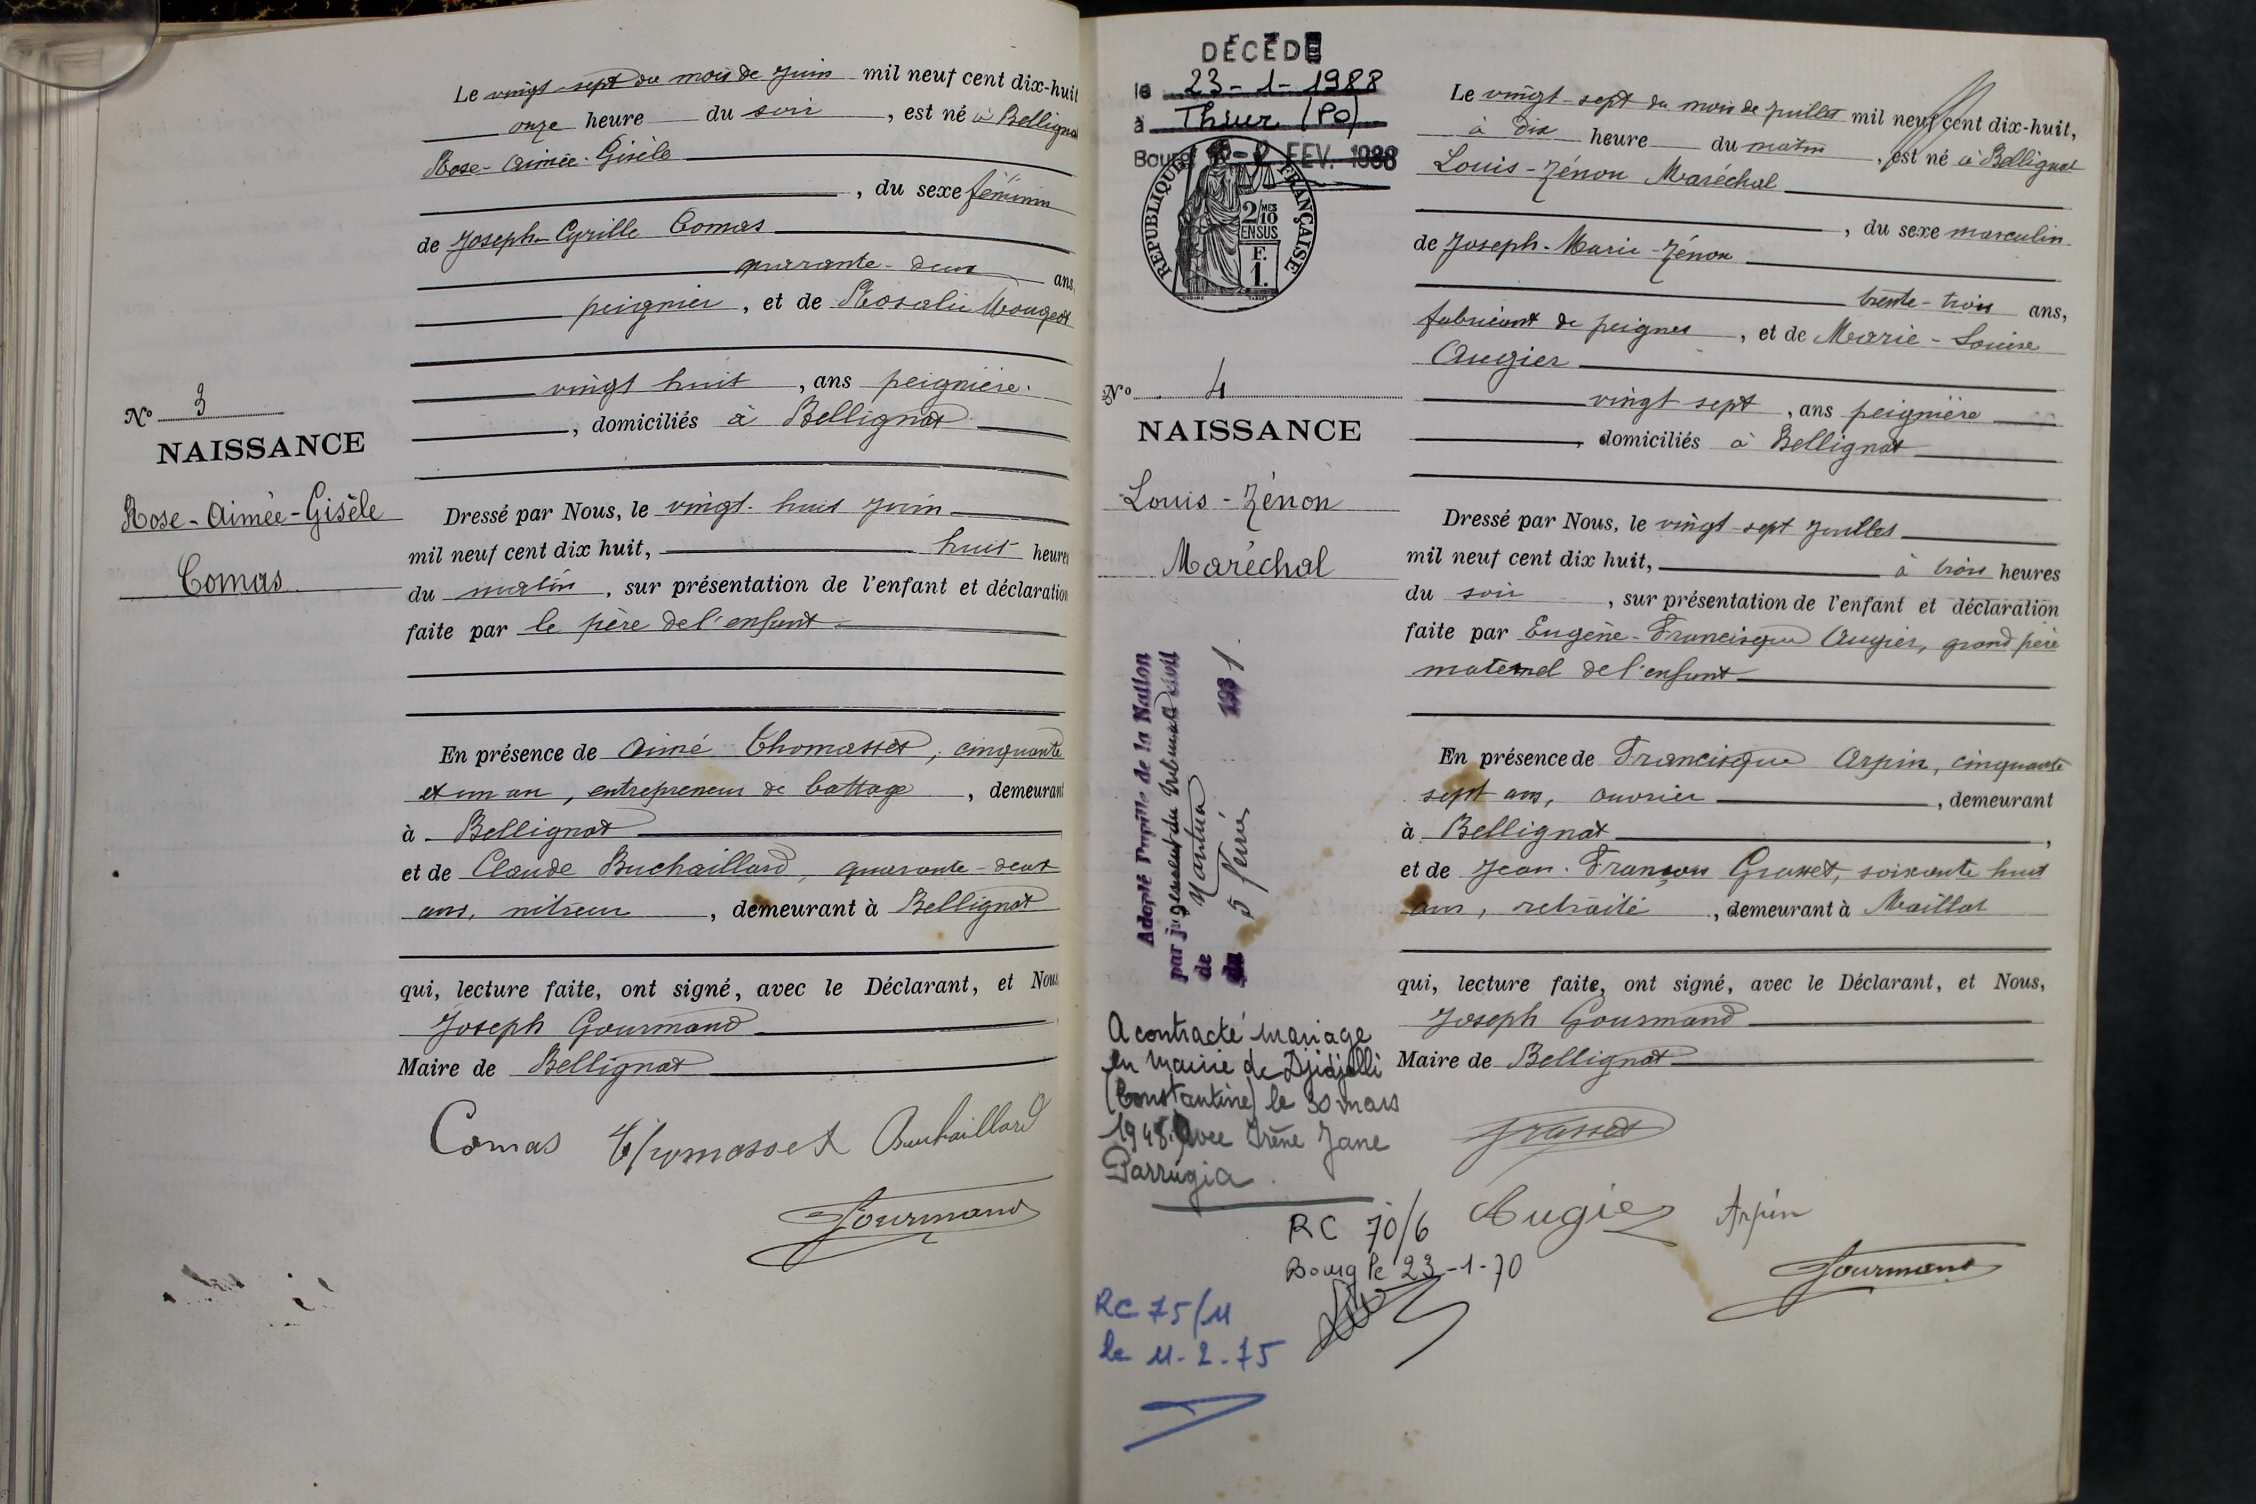 Le vingt-sept du mois de Juin mil neuf cent dix-huit
onze heure du soir, est né à Bellignat
Rose-Aimée-Gisèle
, du sexe féminin
de Joseph-Cyrille Comas
quarante-deux ans,
peignier, et de Rosalie Mougeot
vingt huit, ans peignière.
, domiciliés à Bellignat
No 3
NAISSANCE
Rose-Aimée-Gisèle
Comas
Dressé par Nous, le vingt-huit Juin
mil neuf cent dix huit, huit heures
du matin, sur présentation de l'enfant et déclaration
faite par le père de l'enfant
En présence de Aimé Thomasset, cinquante
et un an, entrepreneur de battage, demeurant
à Bellignat
et de Claude Buchaillard, quarante-deux
ans, demeurant à Bellignat
qui, lecture faite, ont signé, avec le Déclarant, et Nous
Joseph Gourmand
Maire de Bellignat
Comas Thomasset Buchaillard
Gourmand
DÉCÉDÉ
le 23-1-1988
à Thuir (PO)
Bourg FEV. 1988
REPUBLIQUE FRANÇAISE
2/10
MES
EN SUS
F.
1.
No 4
NAISSANCE
Louis-Zénon
Maréchal
Adopté Pupille de la Nation
par jugement du tribunal civil
de Nantua
du 5 février 1931
A contracté mariage
en mairie de Djidjelli
(Constantine) le 30 mars
1948. Avec Irène Jane
Parrugia.
RC 70/6
Bourg le 23-1-70
RC 75/11
le 11-2-75
Le vingt-sept du mois de Juillet mil neuf cent dix-huit,
à dix heure du matin, est né à Bellignat
Louis-Zénon Maréchal
, du sexe masculin
de Joseph-Marie-Zénon
trente-trois ans,
fabricant de peignes, et de Marie-Louise
Augier
vingt sept, ans peignière
, domiciliés à Bellignat
Dressé par Nous, le vingt-sept Juillet
mil neuf cent dix huit, à trois heures
du soir, sur présentation de l'enfant et déclaration
faite par Eugène-Francisque Augier, grand père
maternel de l'enfant
En présence de Francisque Arpin, cinquante
sept ans, ouvrier, demeurant
à Bellignat,
et de Jean-François Grasset, soixante huit
ans, retraité, demeurant à Maillat
qui, lecture faite, ont signé, avec le Déclarant, et Nous,
Joseph Gourmand
Maire de Bellignat
Grasset
Augier Arpin
Gourmand